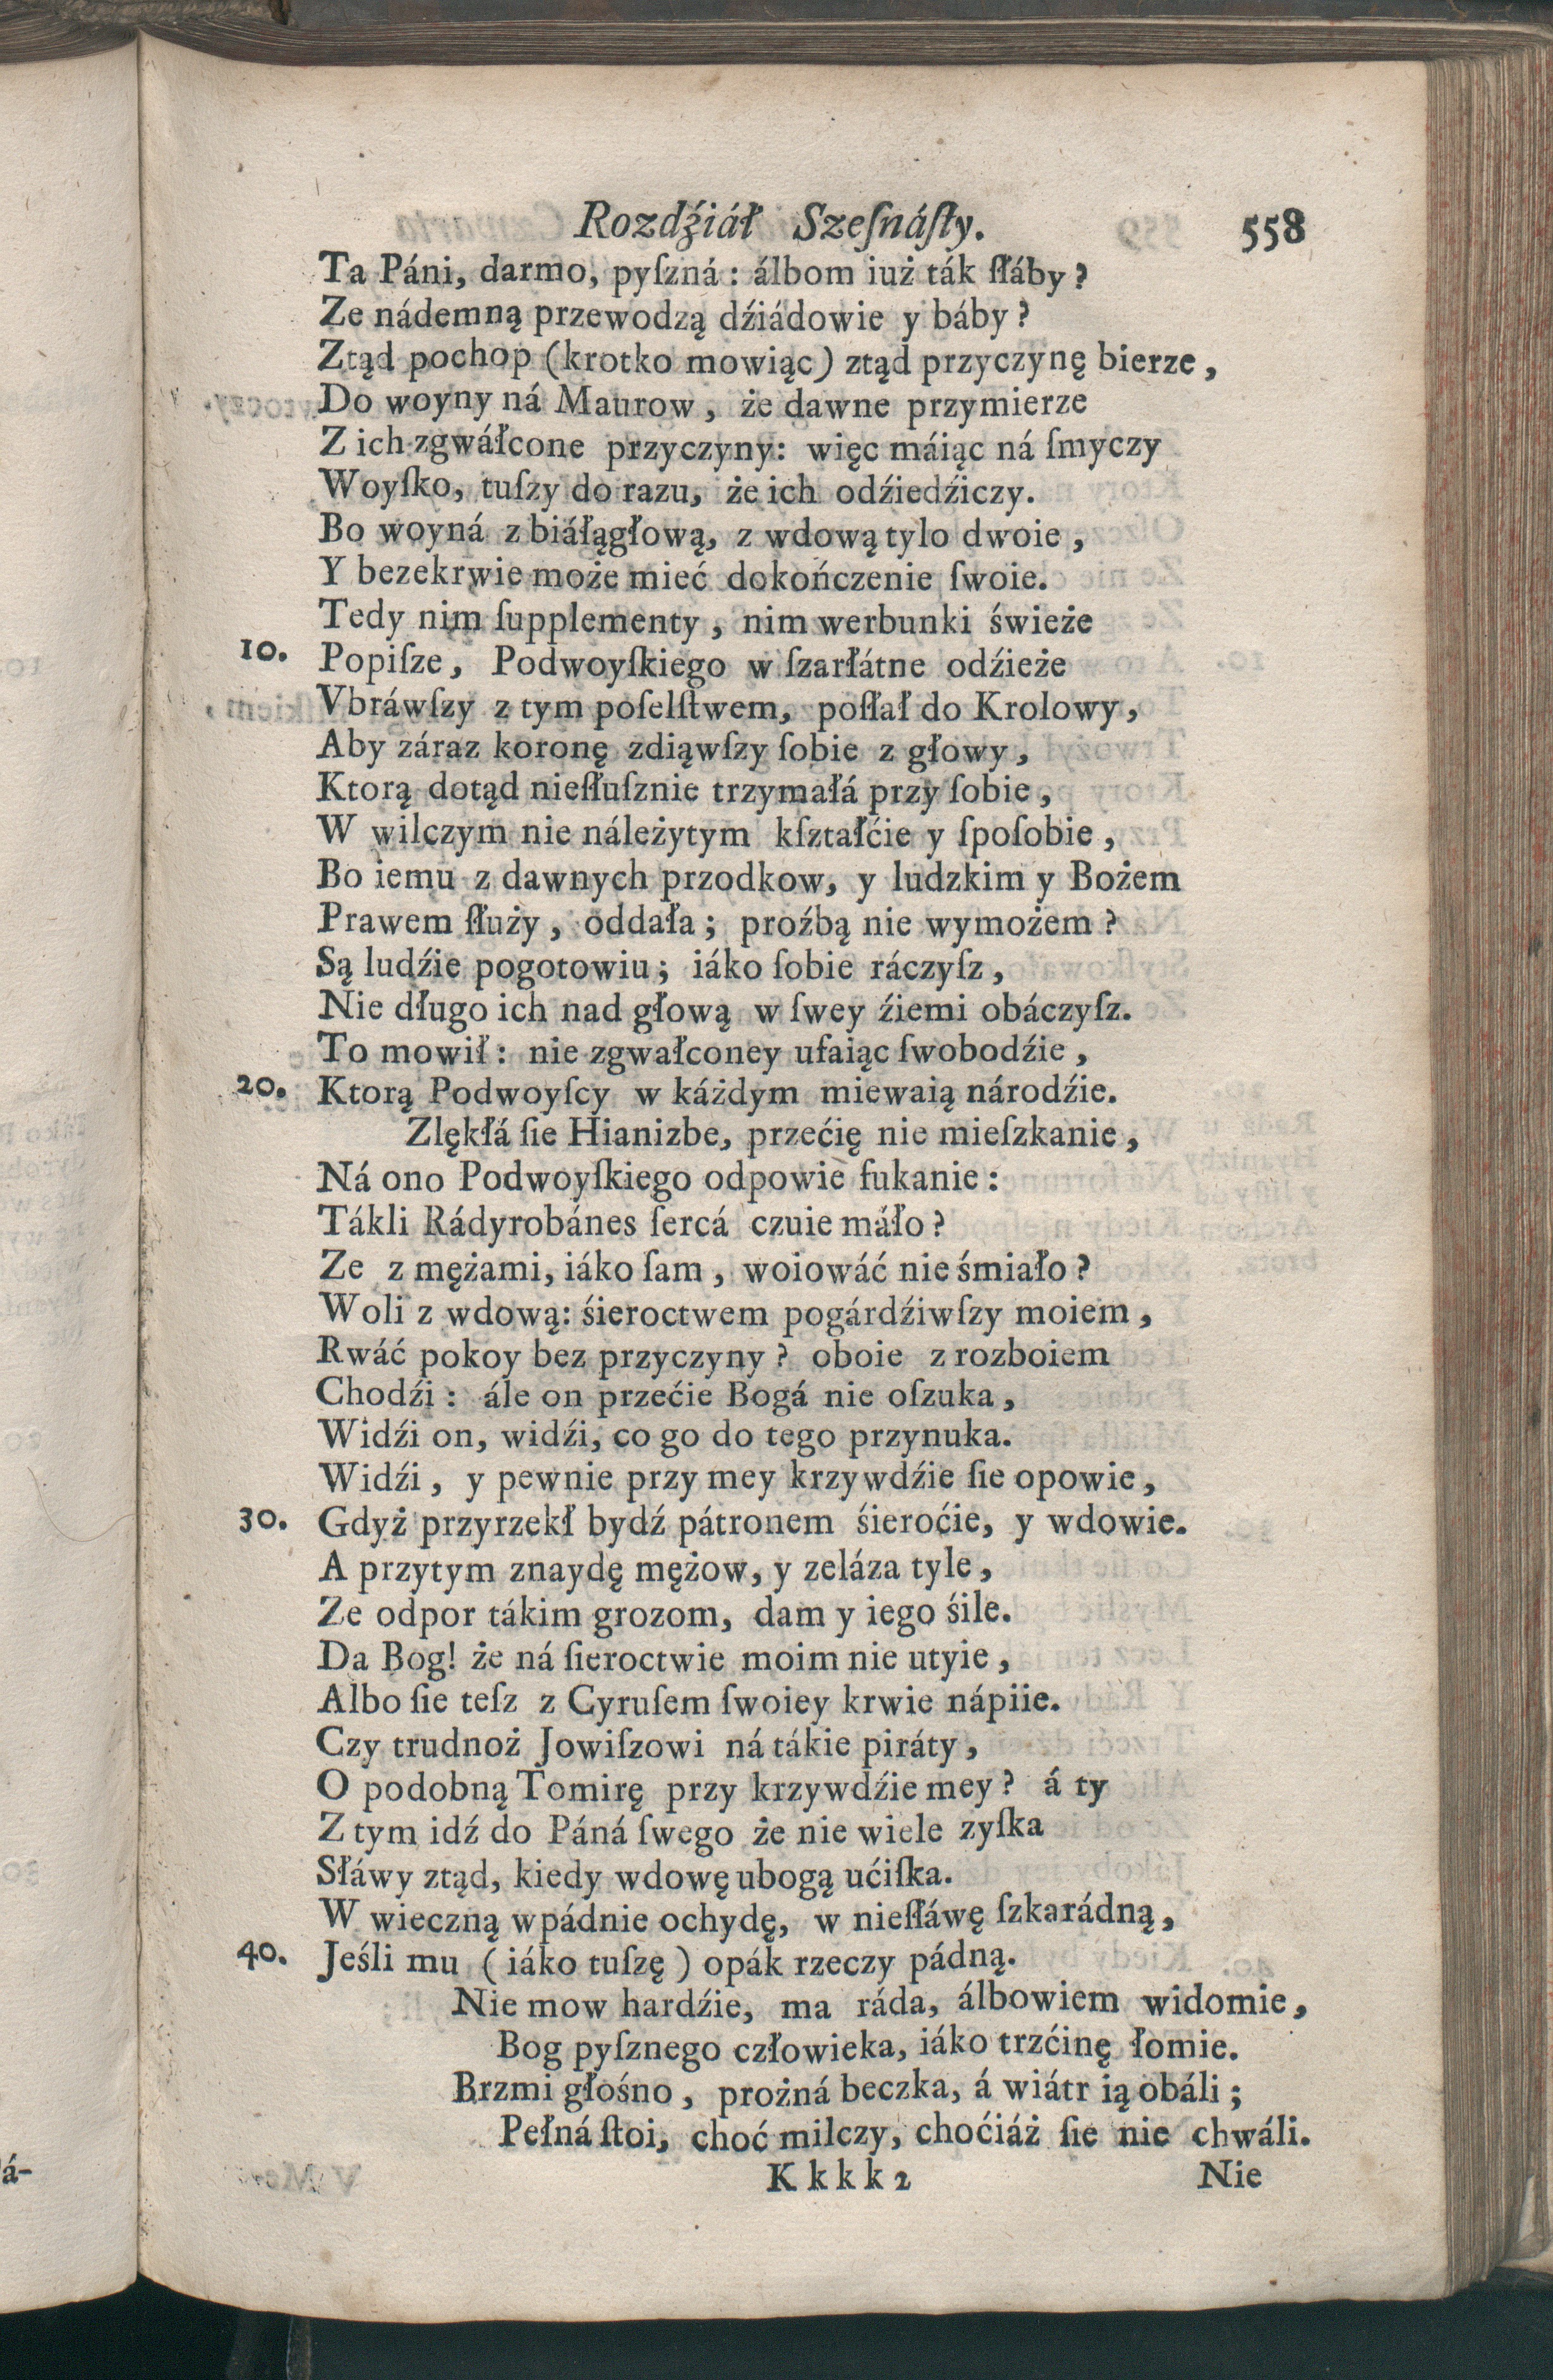 Rozdźiáł Szeſnáſty. 558
Ta Páni, darmo, pyſzná: álbom iuż ták ſłáby?
Ze nádemną przewodzą dźiádowie y báby?
Ztąd pochop (krotko mowiąc) ztąd przyczynę bierze,
Do woyny ná Maurow, że dawne przymierze
Z ich zgwáłcone przyczyny: więc máiąc ná ſmyczy
Woyſko, tuſzy do razu, że ich odźiedźiczy.
Bo woyná z biáłągłową, z wdową tylo dwoie,
Y bezekrwie może mieć dokończenie ſwoie.
Tedy nim ſupplementy, nim werbunki świeże
10. Popiſze, Podwoyſkiego w ſzarłátne odźieże
Vbráwſzy z tym poſelſtwem, poſłał do Krolowy,
Aby záraz koronę zdiąwſzy ſobie z głowy,
Ktorą dotąd nieſłuſznie trzymáłá przy ſobie,
W wilczym nie náleżytym kſztałćie y ſpoſobie,
Bo iemu z dawnych przodkow, y ludzkim y Bożem
Prawem ſłuży, oddała; proźbą nie wymożem?
Są ludźie pogotowiu; iáko ſobie ráczyſz,
Nie długo ich nad głową w ſwey źiemi obáczyſz.
To mowił: nie zgwałconey ufaiąc ſwobodźie,
20. Ktorą Podwoyſcy w káżdym miewaią národźie.
Zlękłá ſie Hianizbe, przećię nie mieſzkanie,
Ná ono Podwoyſkiego odpowie fukanie:
Tákli Rádyrobánes ſercá czuie máło?
Ze z mężami, iáko ſam, woiowáć nie śmiało?
Woli z wdową: śieroctwem pogárdźiwſzy moiem,
Rwáć pokoy bez przyczyny? oboie z rozboiem
Chodźi: ále on przećie Bogá nie oſzuka,
Widźi on, widźi, co go do tego przynuka.
Widźi, y pewnie przy mey krzywdźie ſie opowie,
30. Gdyż przyrzekł bydź pátronem śieroćie, y wdowie.
A przytym znaydę mężow, y zeláza tyle,
Ze odpor tákim grozom, dam y iego śile.
Da Bog! że ná ſieroctwie moim nie utyie,
Albo ſie teſz z Cyruſem ſwoiey krwie nápiie.
Czy trudnoż Jowiſzowi ná tákie piráty,
O podobną Tomirę przy krzywdźie mey? á ty
Z tym idź do Páná ſwego że nie wiele zyſka
Sławy ztąd, kiedy wdowę ubogą ućiſka.
W wieczną wpádnie ochydę, w nieſłáwę ſzkarádną,
40. Jeśli mu (iáko tuſzę) opák rzeczy pádną.
Nie mow hardźie, ma ráda, álbowiem widomie,
Bog pyſznego człowieka, iáko trzćinę łomie.
Brzmi głośno, prożná beczka, á wiátr ią obáli;
Pełná ſtoi, choć milczy, choćiáż ſie nie chwáli.
Kkkk2 Nie
á-